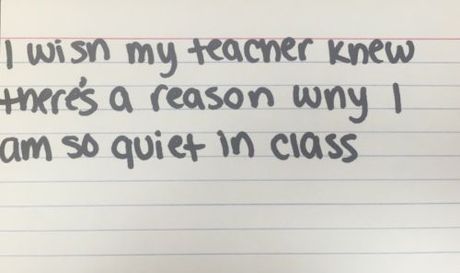 I wish my teacher knew
there's a reason why I
am so quiet in class